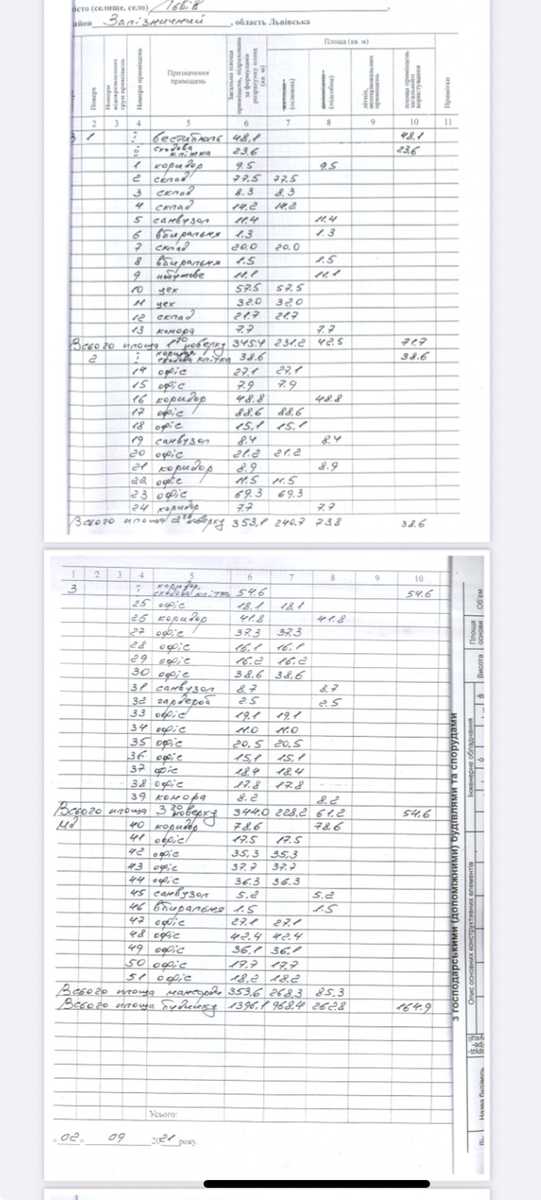 місто (селище, село) Львів
район Залізничний, область Львівська
Поверх
Номери приміщень
Призначення приміщень
Загальна площа приміщень, підрахована за формулами розрахунку площ (кв. м)
Площа (кв. м)
основна
Примітки
2 3 4 5 6 7 8 9 10 11
1 : вестибюль 48,1 48.1
: сходова клітка 23.6 23.6
1 коридор 9.5 9.5
2 склад 77.5 77.5
3 склад 8.3 8.3
4 склад 14.2 14.2
5 санвузол 11.4 11.4
6 вбиральня 1.3 1.3
7 склад 20.0 20.0
8 вбиральня 1.5 1.5
9 побутове 11.1 11.1
10 цех 57.5 57.5
11 цех 32.0 32.0
12 склад 21.7 21.7
13 комора 7.7 7.7
Всього площа 1го поверху 345.4 231.2 42.5 71.7
2 : коридор, сходова клітка 38.6 38.6
14 офіс 27.1 27.1
15 офіс 7.9 7.9
16 коридор 48.8 48.8
17 офіс 88.6 88.6
18 офіс 15.1 15.1
19 санвузол 8.4 8.4
20 офіс 21.2 21.2
21 коридор 8.9 8.9
22 офіс 11.5 11.5
23 офіс 69.3 69.3
24 коридор 7.7 7.7
Всього площа 2го поверху 353,1 240.7 73.8 38.6
1 2 3 4 5 6 7 8 9 10
3 : коридор, сходова клітка 54.6 54.6
25 офіс 18.1 18.1
26 коридор 41.8 41.8
27 офіс 37.3 37.3
28 офіс 16.1 16.1
29 офіс 16.2 16.2
30 офіс 38.6 38.6
31 санвузол 8.7 8.7
32 гардероб 2.5 2.5
33 офіс 19.1 19.1
34 офіс 11.0 11.0
35 офіс 20.5 20.5
36 офіс 15,1 15,1
37 офіс 18.4 18.4
38 офіс 17.8 17.8
39 комора 8.2 8.2
Всього площа 3го поверху 344.0 228,2 61.2 54.6
Мд 40 коридор 78.6 78.6
41 офіс 17.5 17.5
42 офіс 35,3 35,3
43 офіс 37.7 37.7
44 офіс 36.3 36.3
45 санвузол 5.2 5.2
46 вбиральня 1.5 1.5
47 офіс 27.1 27.1
48 офіс 42.4 42.4
49 офіс 36,1 36,1
50 офіс 17.7 17.7
51 офіс 18.2 18.2
Всього площа мансарди 353,6 268.3 85,3
Всього площа будинку 1396,1 968.4 262.8 164.9
Усього:
"02" 09 2021 року
з господарськими (допоміжними) будівлями та спорудами
Опис основних конструктивних елементів
Інженерне обладнання
Площа основи
Висота
Об'єм